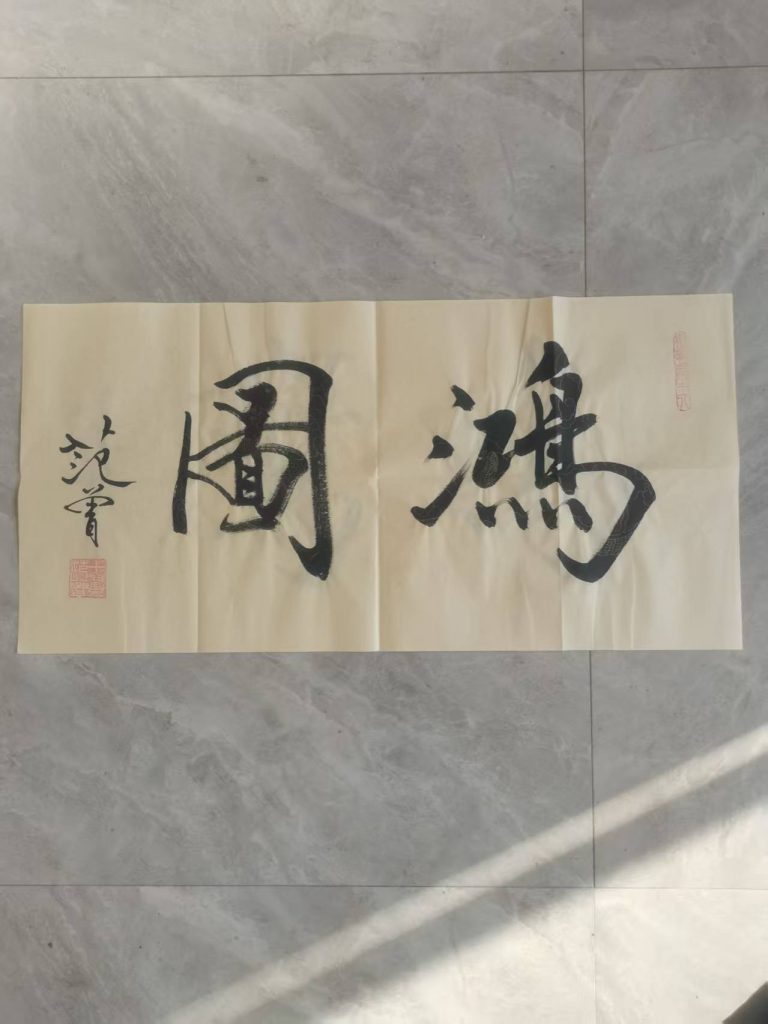 鴻圖
范曾